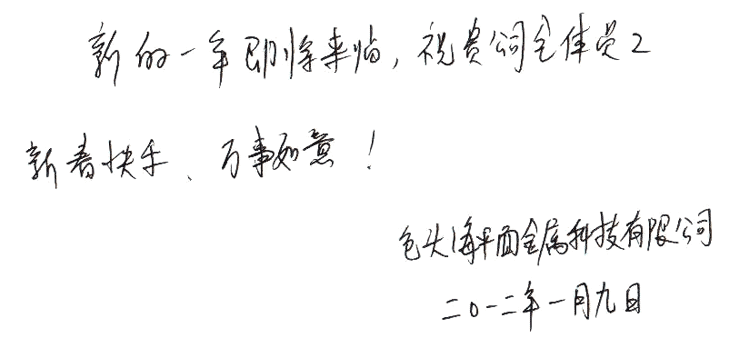 新的一年即将来临，祝贵公司全体员工
新春快乐、万事如意！
包头海平面金属科技有限公司
二〇一二年一月九日